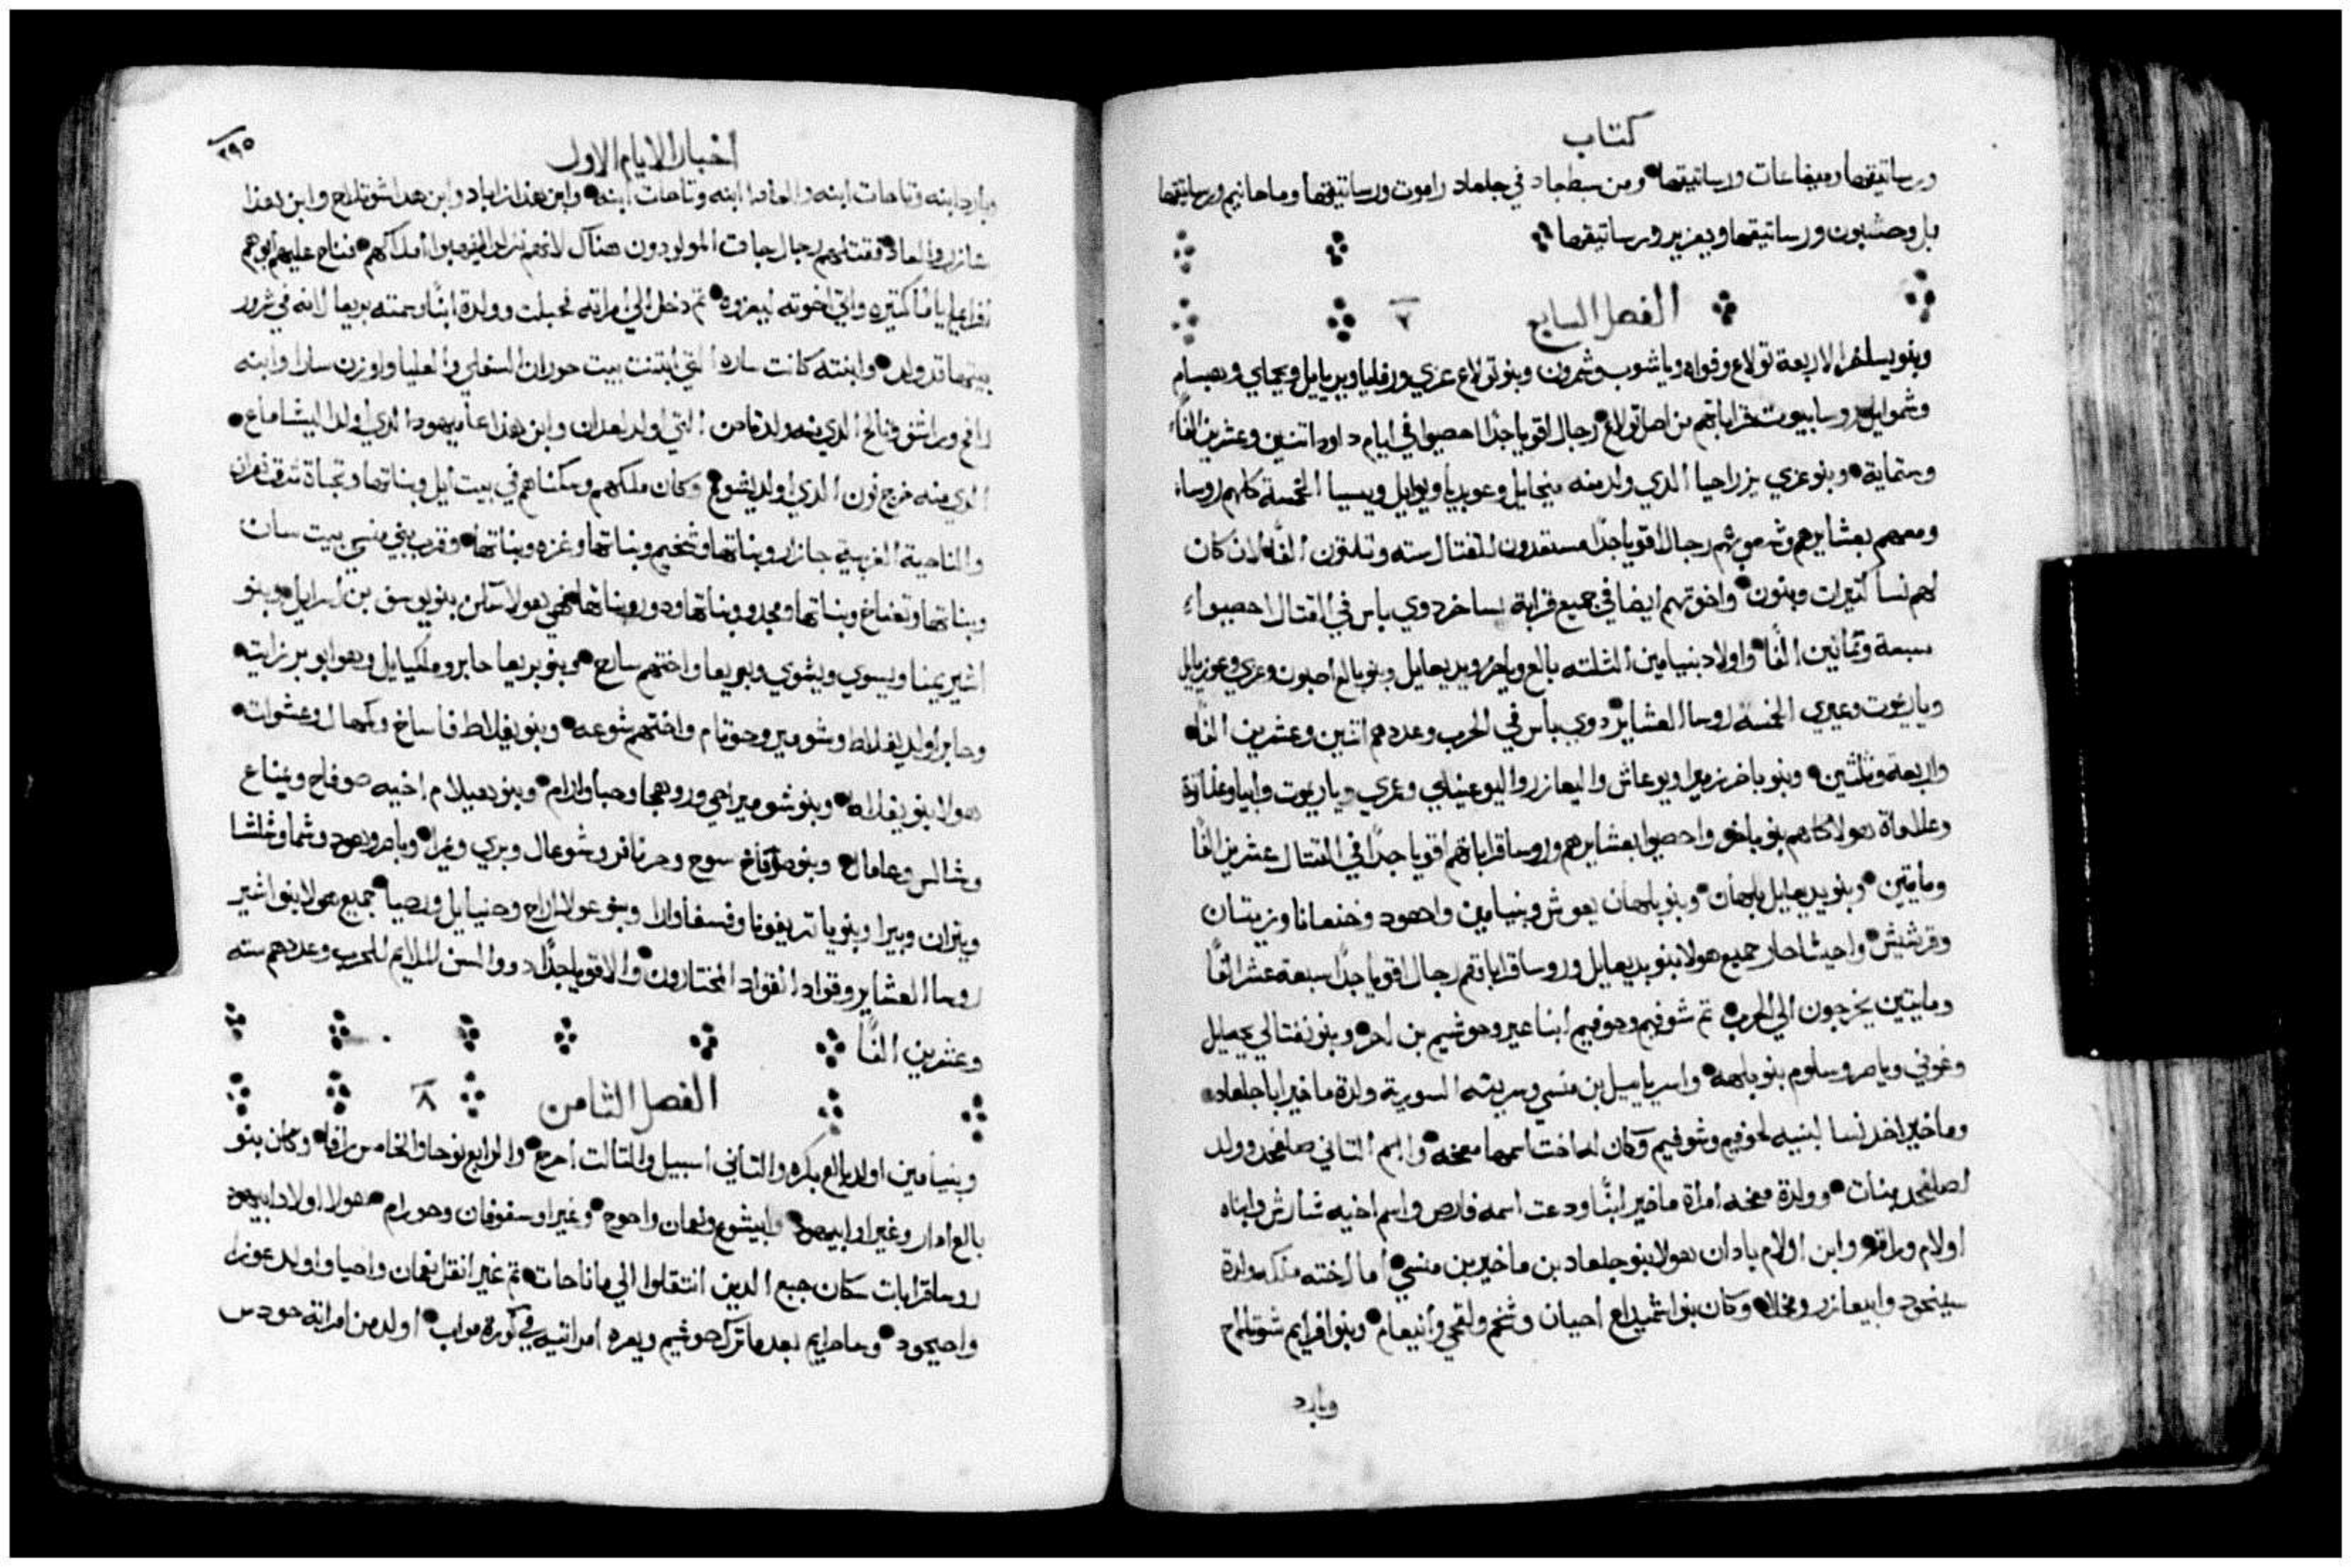 كتاب
ورساتيقها وميفاعات ورساتيقها ومن سبط جاد في جلعاد راموت ورساتيقها وماحانيم ورساتيقها
بل وحشبون ورساتيقها ويعزير ورساتيقها
الفصل السابع ٧
وبنو يساخر الاربعة تولاع وفواه وياشوب وشمرون وبنو تولاع عزي ورفايا ويريايل ويحماي ويبسام
وشموايل روسا بيوت قراباتهم من اصل تولاع رجال اقويا جدًا احصيوا في ايام داود اتنين وعشرين الفًا
وستماية وبنو عزي يزراحيا الدي ولد منه ميخايل وعوبديا ويوايل ويسيا الخمسة كلهم روساء
ومعهم بعشايرهم وشعوبهم رجال اقويا جدًا مستعدون للقتال سته وتلتون الفًا لان كان
لهم نسا كتيرات وبنون واخوتهم ايضا في جميع قرابة يساخر دوي باس في القتال احصيوا
سبعة وتمانين الفًا واولاد بنيامين الثلته بالع وباخر ويديعايل وبنو بالع اصبون وعزي وعوزيايل
وياريموت وعيري الخمسة روسا العشاير دوي باس في الحرب وعددهم اتنين وعشرين الفًا
واربعة وثلثين وبنو باخر زميرا ويوعاش واليعازر واليوعيناي وعمري وياريموت وابيا وعناتوت
وعلاماة هولا كلهم بنو باخر واحصيوا بعشايرهم وروسا قراباتهم اقويا جدًا في القتال عشرين الفًا
ومايتين وبنو يديعايل بلهان وبنو بلهان يعوش وبنيامين واهود وخنعانا وزيتان
وترشيش واحيشاحار جميع هولا بنو يديعايل وروسا قراباتهم رجال اقويا جدًا سبعة عشر الفًا
ومايتين يخرجون الي الحرب تم شوفيم وحوفيم ابنا عير وحوشيم بن احر وبنو نفتالي يحصيل
وغوني وياصر وسلوم بنو بلهه واسريايل بن منسي وسريته السورية ولدة ماخير ابا جلعاد
وماخير اخد نسا لبنيه لحوفيم وشوفيم وكان له اخت اسمها معخه واسم التاني صلفحد وولد
لصلفحد بنات وولدة معخه امراة ماخير ابنًا ودعت اسمه فارص واسم اخيه شارش وابناه
اولام وراقم وابن اولام بادان هولا بنو جلعاد بن ماخير بن منسي اما اخته ملكه ولدة
سينحود وابيعازر ومحلا وكان بنو اشميداع احيان وشخم ولقحي وانيعام وبنو افرايم شوتالاح
وبارد
٢٩٥
اخبار الايام الاول
وبارد ابنه وتاحات ابنه والعادا ابنه وتاحات ابنه وابن هدا زاباد وابن هدا شوتالاح وابن هدا
عازر والعاد فقتلهم رجال جات المولودون هناك لانهم نزلوا ليغصبوا املاكهم فناح عليهم ابوهم
افرايم اياما كتيره واتي اخوته ليعزوه تم دخل الي امراته فحبلت وولدة ابنًا وسمته بريعا لانه في شرور
بيتها قد ولد وابنته كانت ساره التي ابتنت بيت حوران السفلي والعليا واوزن سارا وابنه
رافح وراشف وتالح الدي منه ولد تاحن التي اولد لعدان وابن هدا عاميهود الدي اولد اليشاماع
الدي منه خرج نون الدي اولد ايشوع وكان ملكهم وسكناهم في بيت ايل وبناتها وتجاة شرق نعران
والناحية الغربية جازار وبناتها وشخيم وبناتها وغزه وبناتها وقرب بني منسي بيت سان
وبناتها وتعناخ وبناتها ومجدو وبناتها ودور وبناتها في هولا سكن بنو يوسف بن اسرايل وبنو
اشير يمنا ويسوي ويشوي وبريعا واختهم سارح وبنو بريعا حابر وملكيايل وهو ابو برزايت
وحابر اولد يفلاط وشومير وحوتام واختهم شوعه وبنو يفلاط فاساخ وبمهال وعشوات
هولا بنو يفلاط وبنو شومير احي وروهجا وحبا وارام وبنو هيلام اخيه صوفاح ويمناع
وشالس وعامال وبنو صوفاح سوح وحرنافر وشوعال وبري ويمرا وباصر وهود وشما وشلشا
ويثران وبيرا وبنو ياتر يفونا وفسفا وارا وبنو عولا اراح وحنيايل ورصيا جميع هولا بنو اشير
روسا العشاير وقواد القواد المختارون والاقويا جدًا ودوا السن الملايم للحرب وعددهم سته
وعشرين الفًا
الفصل الثامن ٨
وبنيامين اولد بالع بكره والتاني اسبيل والتالت احرح والرابع نوحا والخامس رافا وكان بنو
بالع ادار وغيرا وابيهود وابيشوع ونعمان واحوح وغيرا وسفوفان وحورام هولا اولاد ابيهود
روسا قرابات سكان جبع الدين انتقلوا الي ماناحات تم غيرا نقل نعمان واحيا واولد عوزا
واحيحود وساحرايم بعد ما ترك حوشيم وبعره امراتيه في كورة مواب اولد من امراته حودس